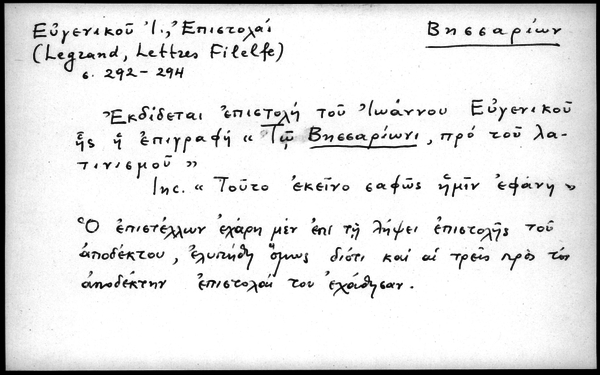 Εὐγενικοῦ Ἰ., Ἐπιστολαί
Βησσαρίων
(Legrand, Lettres Filelfe)
σ. 292-294
Ἐκδίδεται ἐπιστολή τοῦ Ἰωάννου Εὐγενικοῦ
ἧς ἡ ἐπιγραφή « Τῷ Βησσαρίωνι, πρό τοῦ λα-
τινισμοῦ »
Inc. « Τοῦτο ἐκεῖνο σαφῶς ἡμῖν ἐφάνη »
Ὁ ἐπιστέλλων ἐχάρη μέν ἐπι τῇ λήψει ἐπιστολῆς τοῦ
ἀποδέκτου, ἐλυπήθη ὅμως διότι καί αἱ τρεῖς πρὸς τόν
ἀποδέκτην ἐπιστολαί του ἐχάθησαν.